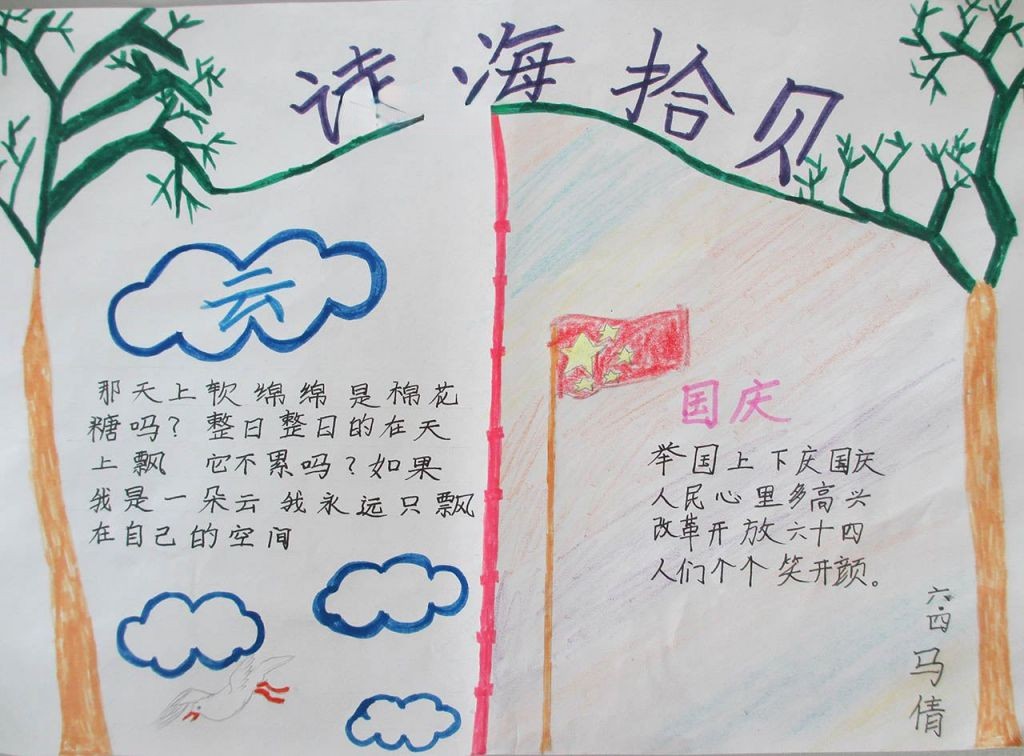 诗海拾贝
云
那天上软绵绵是棉花
糖吗？整日整日的在天
上飘 它不累吗？如果
我是一朵云 我永远只飘
在自己的空间
国庆
举国上下庆国庆
人民心里多高兴
改革开放六十四
人们个个笑开颜。
六.四
马倩